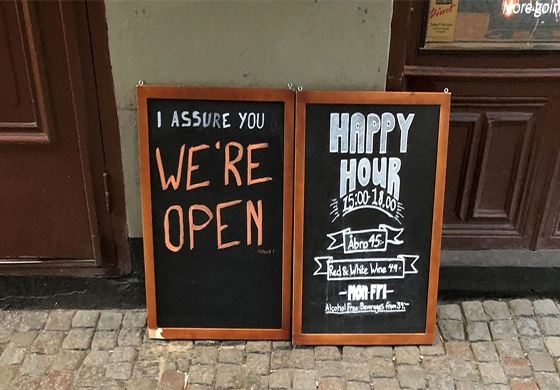 I ASSURE YOU
WE'RE
OPEN
HAPPY
HOUR
15:00-18.00
Åbro 45:-
Red & White Wine 49:-
-MON-FRI-
Alcohol Free Beverages from 39:-
More goin